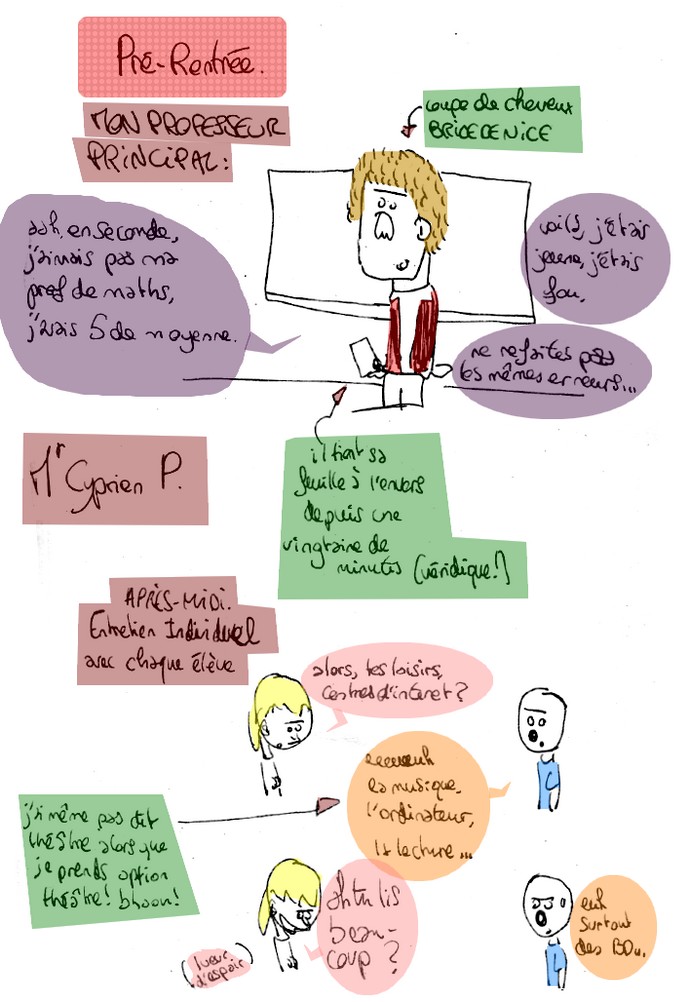 Pré-Rentrée.
MON PROFESSEUR
PRINCIPAL:
coupe de cheveux
BRICEDENICE
aah, en seconde,
j'aimais pas ma
prof de maths,
j'avais 5 de moyenne.
voilà, j'étais
jeune, j'étais
fou,
ne refaites pas
les mêmes erreurs...
Mr Cyprien P.
il tient sa
feuille à l'envers
depuis une
vingtaine de
minutes (véridique!)
APRÈS-MIDI.
Entretien Individuel
avec chaque élève
alors, tes loisirs,
centres d'interet?
eeeeeuh
la musique,
l'ordinateur,
la lecture...
j'ai même pas dit
théâtre alors que
je prends option
théâtre!
ah tu lis
beau-
coup?
(lueur
d'espoir)
euh
surtout
des BDs.